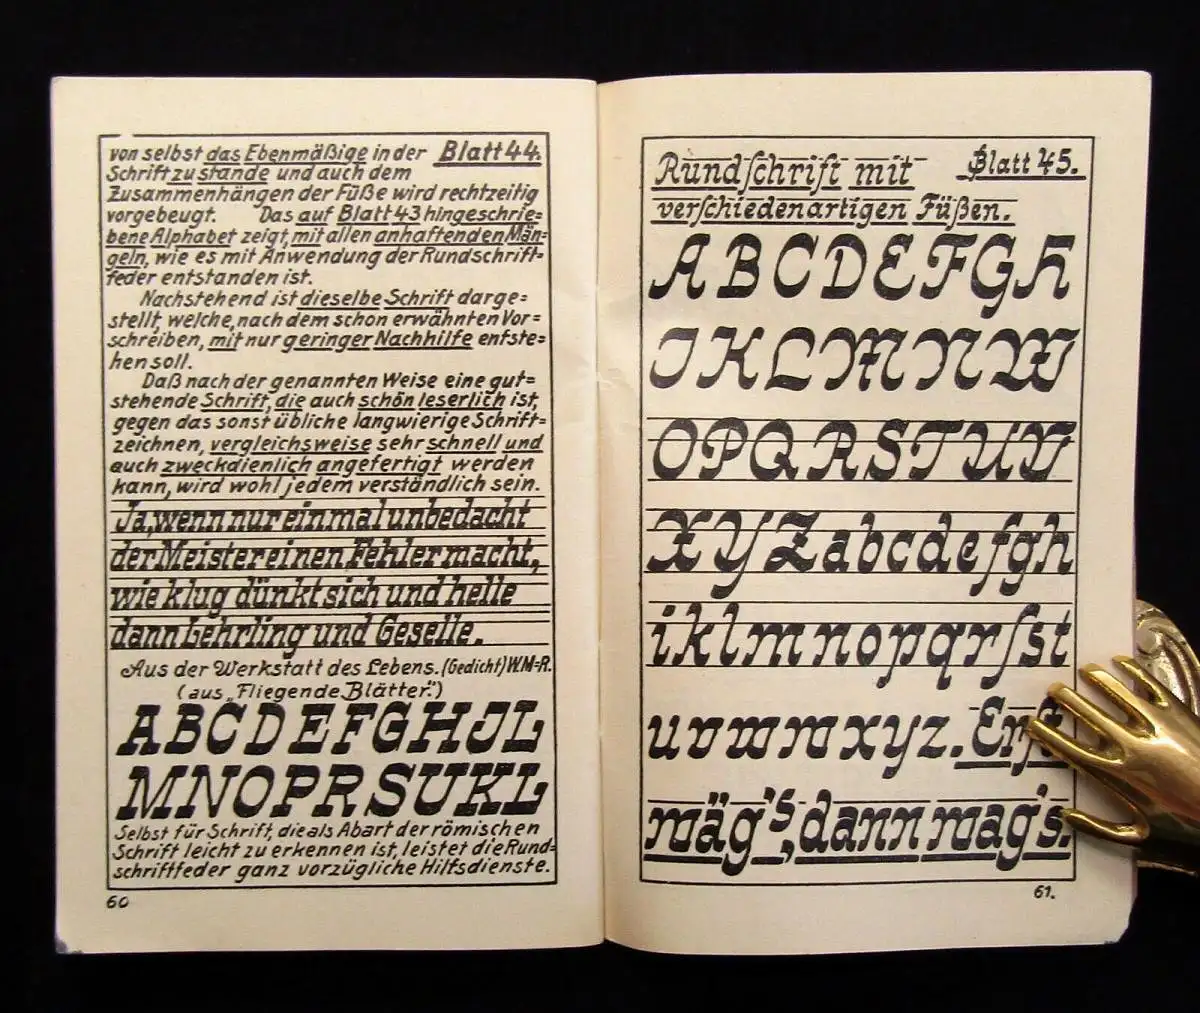 von selbst das Ebenmäßige in der Blatt 44.
Schrift zu stande und auch dem
Zusammenhängen der Füße wird rechtzeitig
vorgebeugt. Das auf Blatt 43 hingeschrie=
bene Alphabet zeigt, mit allen anhaftenden Män=
geln, wie es mit Anwendung der Rundschrift=
feder entstanden ist.
Nachstehend ist dieselbe Schrift darge=
stellt, welche, nach dem schon erwähnten Vor=
schreiben, mit nur geringer Nachhilfe entste=
hen soll.
Daß nach der genannten Weise eine gut=
stehende Schrift, die auch schön leserlich ist,
gegen das sonst übliche langwierige Schrift=
zeichnen, vergleichsweise sehr schnell und
auch zweckdienlich angefertigt werden
kann, wird wohl jedem verständlich sein.
Ja, wenn nur einmal unbedacht
der Meister einen Fehler macht,
wie klug dünkt sich und helle
dann Lehrling und Geselle.
Aus der Werkstatt des Lebens. (Gedicht) W.M=R.
(aus „Fliegende Blätter“.)
ABCDEFGHJL
MNOPRSUKL
Selbst für Schrift, die als Abart der römischen
Schrift leicht zu erkennen ist, leistet die Rund=
schriftfeder ganz vorzügliche Hilfsdienste.
60
Rundſchrift mit Blatt 45.
verſchiedenartigen Füßen.
ABCDEFGH
IJKLMNW
OPQRSTUV
XYZabcdefgh
iklmnopqrſst
uvwmxyz. Erſt
wäg's, dann wag's.
61.